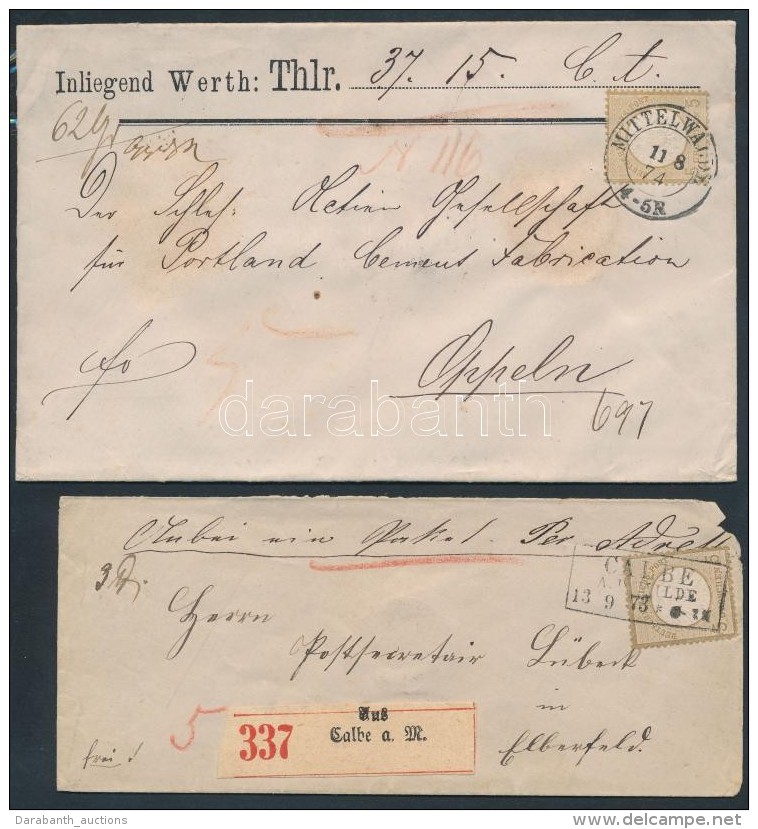 Inliegend Werth: Thlr. 37. 15. C. t.
N 116
MITTELWALDE
11 8
74
4-5N
Der Schles: Actien Gesellschaft
für Portland Cement Fabrication
fo
Oppeln
697
darabanth
Anbei ein Paket. Per Adresse
CALBE
A. MILDE
13 9 73 * 6-7N
Herrn
Postsecretair Lübeck
in
Elberfeld.
frei!
5
337
Aus
Calbe a. M.
Darabanth_auctions
www.delcampe.net